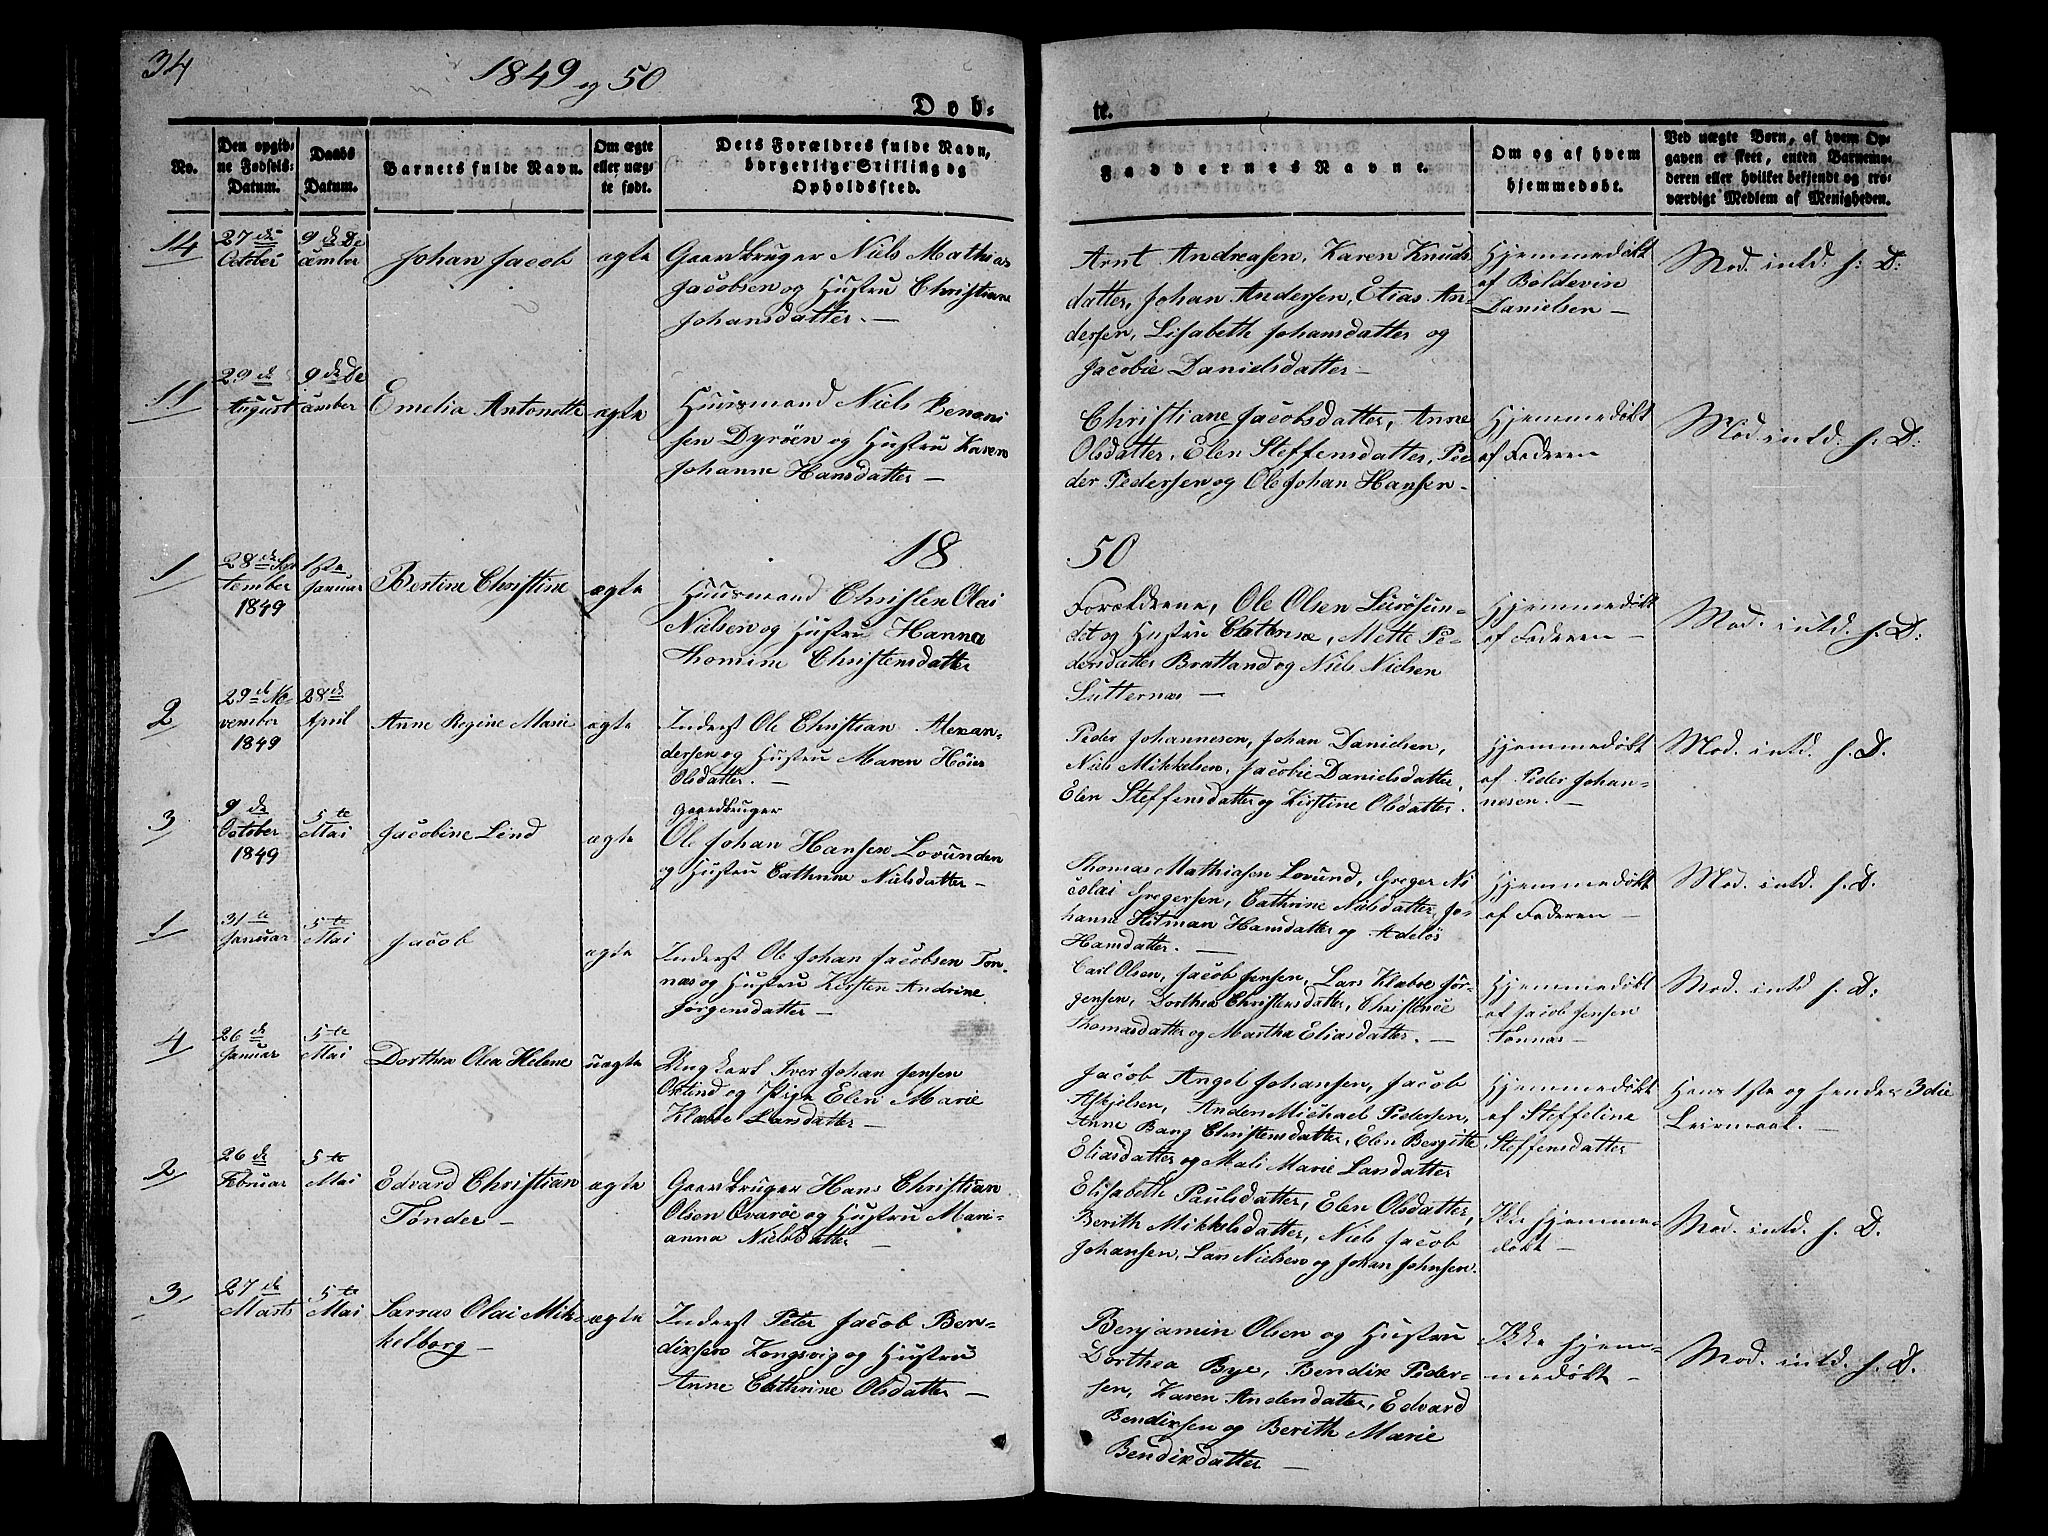 34
1849 og 50
Dob-
te.
No.
Den opgiv-
ne Fødsels-
Datum.
Daabs
Datum.
Barnets fulde Navn.
Om ægte
eller uæg-
te født.
Dets Forældres fulde Navn,
borgerlige Stilling og
Opholdssted.
Faddernes Navne.
Om og af hvem
hjemmedøbt.
Ved uægte Børn, af hvem Op-
gaven er skeet, enten Barnemo-
deren eller hvilket bekjendt og tro-
værdigt Medlem af Menigheden.
14
27de
October
9de De
cember
Johan Jacob
ægte
Gaardbruger Niels Mathias
Jacobsen og Hustru Christiane
Johansdatter. —
Arnt Andreasen, Karen Knuds
datter, Johan Andersen, Elias An-
dersen, Lisabeth Johansdatter og
Jacobie Danielsdatter —
Hjemmedøbt
af Boldevin
Danielsen —
Mod. intd. f: D:
11
29de
August
9de De
cember
Emelia Antonette
ægte
Huusmand Niels Benoni
sen Dyröen og Hustru Karen
Johanne Hansdatter —
Christiane Jacobsdatter, Anne
Olsdatter, Elen Steffensdatter, Pe
der Pedersen og Ole Johan Hansen —
Hjemmedøbt
af Faderen
Mod. intd. f. D:
18
50
1
28de Sep
tember
1849
1ste
Januar
Bertine Christine
ægte
Huusmand Christen Olai
Nielsen og Hustru Hanna
Thomine Christensdatter
Forældrene, Ole Olsen Leirösun-
det og Hustru Cathrine, Mette Pe-
dersdatter Bratland og Niels Nielsen
Sutternæs —
Hjemmedøbt
af Faderen —
Mod. intd. f. D:
2
29de No-
vember
1849
28de
April
Anne Regine Marie
ægte
Inderst Ole Christian Alexan-
dersen og Hustru Maren Höier
Olsdatter. —
Peder Johannesen, Johan Danielsen,
Niels Mikkelsen, Jacobie Danielsdatter,
Elen Steffensdatter og Kirstine Olsdatter.
Hjemmedøbt
af Peder Johan-
nesen. —
Mod. intd. f. D.
3
9de
October
1849
5te
Mai
Jacobine Lind
ægte
Gaardbruger
Ole Johan Hansen Lovunden
og Hustru Cathrine Nielsdatter —
Thomas Mathiasen Lovund, Greger Ni
colai Gregersen, Cathrine Nielsdatter, Jo-
hanne Hitman Hansdatter og Adelös
Hansdatter. —
Hjemmedøbt
af Faderen —
Mod. intd. f. D.
1
31te
Januar
5te
Mai
Jacob
ægte
Inderst Ole Johan Jacobsen Ton-
næs og Hustru Kirsten Andrine
Jörgensdatter —
Carl Olsen, Jacob Jensen, Lars Klæboe Jør-
gensen, Dorthea Christensdatter, Christence
Thomasdatter og Martha Eliasdatter. —
Hjemmedøbt
af Jacob Jensen
Tonnæs —
Mod. intd. f. D:
4
26de
Januar
5te
Mai
Dorthea Olea Helene
uægte
Ungkarl Iver Johan Jensen
og Pige Elen Marie
Klæboe Larsdatter —
Jacob Angel Johansen, Jacob
Askjelsen, Anders Michael Pedersen,
Anne Bang Christensdatter, Elen Bergitte
Eliasdatter og Mali Marie Larsdatter
Hjemmedøbt
af Steffeline
Steffensdatter
Hans 1ste og hendes 3die
Leiermaal. —
2
26de
Februar
5te
Mai
Edvard Christian
Tønder —
ægte
Gaardbruger Hans Christian
Olsen Qvaröe og Hustru Mari-
anna Nielsdatter —
Elisabeth Paulsdatter, Elen Olsdatter,
Berith Mikkelsdatter, Niels Jacob
Johansen, Lars Nielsen og Johan Johnsen.
Ikke hjemme-
døbt —
Mod. intd. f. D.
3
27de
Marts
5te
Mai
Sarras Olai Mik-
kelborg —
ægte
Inderst Peter Jacob Ben-
dixsen Kongsvig og Hustru
Anne Cathrine Olsdatter —
Benjamin Olsen og Hustru
Dorthea Bye, Bendix Peder-
sen, Karen Andersdatter, Edvard
Bendixsen og Berith Marie
Bendixdatter —
Ikke hjem-
medøbt —
Mod. intd. f. D.